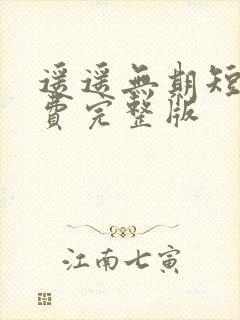 遥遥無期短
費完整版
江南七寅